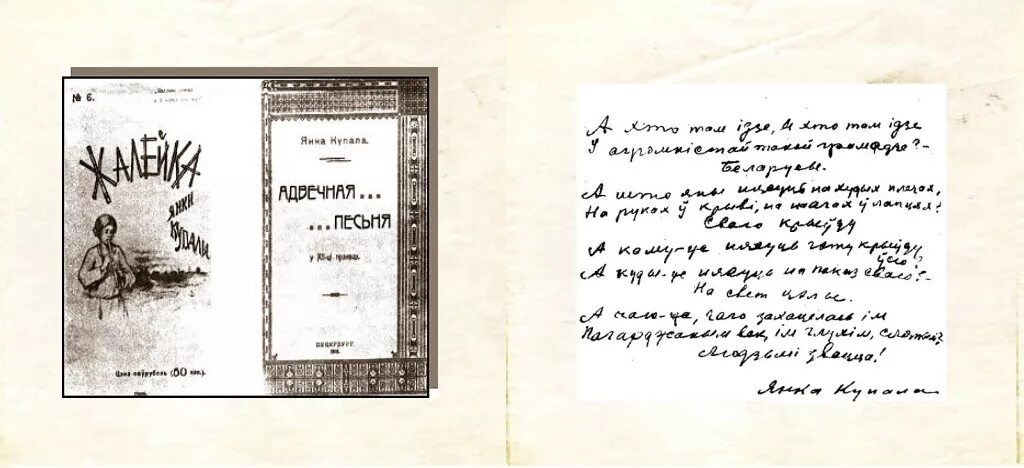 № 6.
ЖАЛЕЙКА
ЯНКИ
КУПАЛИ
Цэна паўрубель (50 кап.)
Янка Купала.
АДВЕЧНАЯ...
...ПЕСЬНЯ
у XII-ці праявах.
ПЕЦЯРБУРГ
1910.
А хто там ідзе, А хто там ідзе
У агромністай такой грамадзе? –
Беларусы.
А што яны нясуць на худых плячах,
На руках ў крыві, на нагах ў лапцях?
Сваю крыўду
А каму-ж нясуць гэту крыўду ўсю?
А куды-ж нясуць на паказ сваю? –
На свет цэлы.
А чаго-ж, чаго захацелась ім
Пагарджаным век, ім глухім, сляпым?
Людзьмі звацца!
Янка Купала